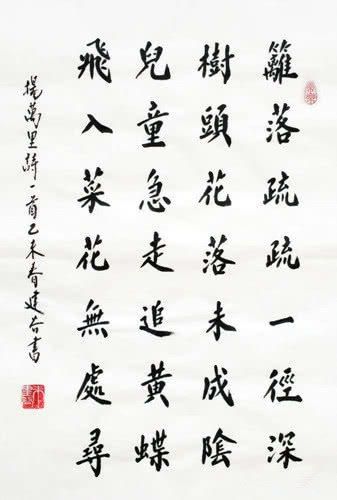 籬落疏疏一徑深
樹頭花落未成陰
兒童急走追黃蝶
飛入菜花無處尋
楊萬里詩一首乙未春建合書